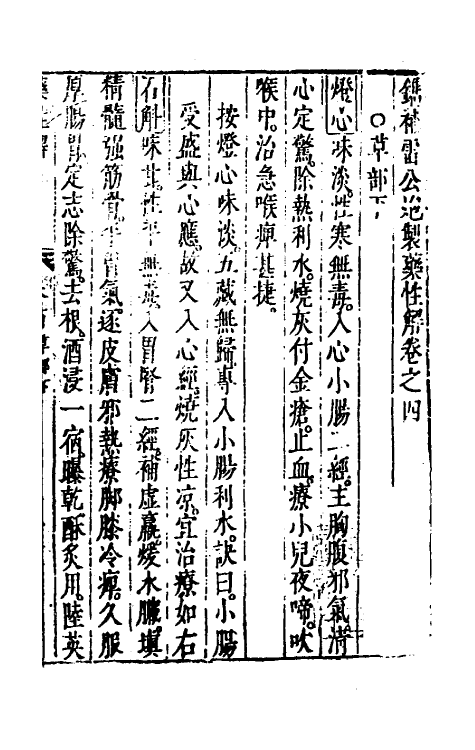 鐫補雷公炮製藥性解卷之四
○草部下
燈心味淡性寒無毒入心小腸二經主胸腹邪氣清
心定驚除熱利水燒灰付金瘡止血療小兒夜啼吹
喉中治急喉痺甚捷。
按燈心味淡五藏無歸專入小腸利水訣曰小腸
受盛與心應故又入心經燒灰性凉宜治療如右
石斛味甘性平無毒入胃腎二經補虛羸煖水臟填
精髓强筋骨平胃氣逐皮膚邪熱療脚膝冷痺久服
厚腸胃定志除驚去根酒浸一宿曝乾酥炙用陸英